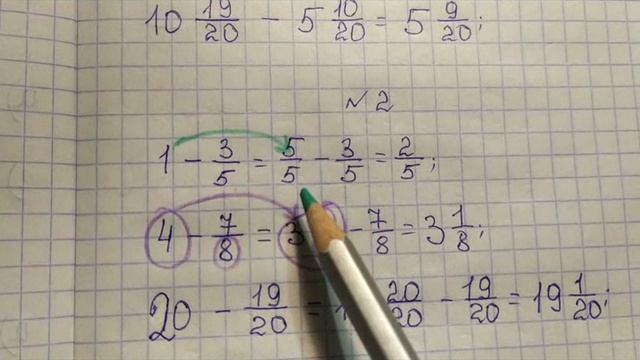 10 19/20 - 5 10/20 = 5 9/20;
№ 2
1 - 3/5 = 5/5 - 3/5 = 2/5;
4 - 7/8 = 3 - 7/8 = 3 1/8;
20 - 19/20 = 1 20/20 - 19/20 = 19 1/20;